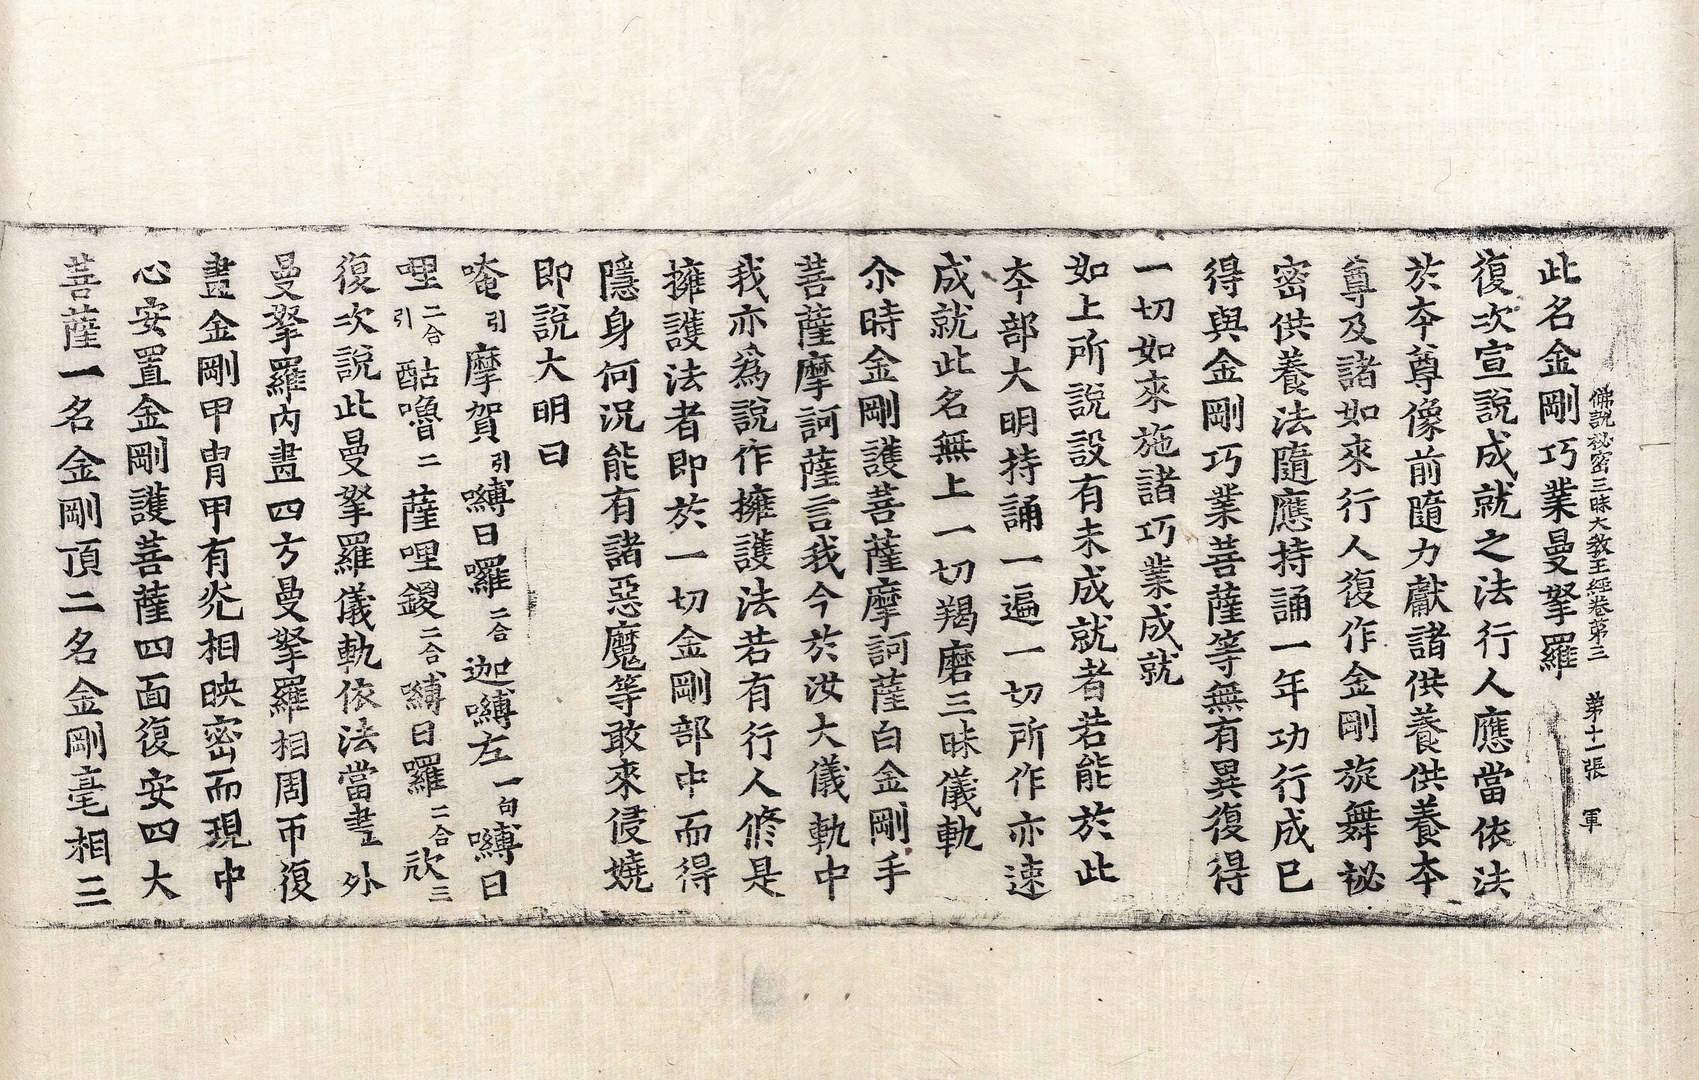 佛說秘密三昧大教王經卷第三　第十一張　軍
此名金剛巧業曼拏羅
復次宣說成就之法行人應當依法
於夲尊像前隨力獻諸供養供養夲
尊及諸如來行人復作金剛旋舞秘
密供養法隨應持誦一年功行成已
得與金剛巧業菩薩等無有異復得
一切如來施諸巧業成就
如上所說設有未成就者若能於此
夲部大明持誦一遍一切所作亦速
成就此名無上一切羯磨三昧儀軌
尒時金剛護菩薩摩訶薩白金剛手
菩薩摩訶薩言我今於汝大儀軌中
我亦為說作擁護法若有行人修是
擁護法者即於一切金剛部中而得
隱身何況能有諸惡魔等敢來侵嬈
即說大明曰
唵引摩賀引嚩日囉二合迦嚩左一句嚩日
哩二合引酤嚕二薩哩鑁二合嚩日囉二合㰠三
復次說此曼拏羅儀軌依法當畫外
曼拏羅內畫四方曼拏羅相周帀復
畫金剛甲冑甲有光相映密而現中
心安置金剛護菩薩四面復安四大
菩薩一名金剛頂二名金剛毫相三